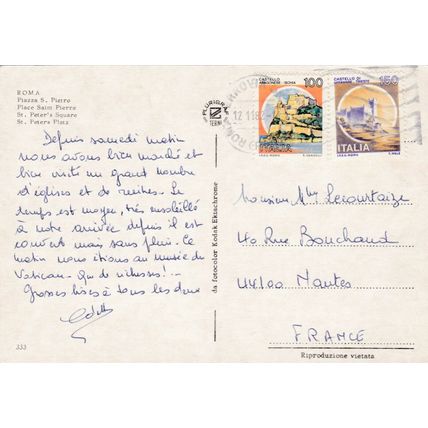 ROMA
Piazza S. Pietro
Place Saint Pierre
St. Peter's Square
St. Peters Platz
Depuis samedi matin
nous avons bien marché et
bien visité un grand nombre
d'églises et de ruines. Le
temps est moyen, très ensoleillé
à notre arrivée depuis il est
couvert mais sans pluie. Ce
matin nous étions au musée du
Vatican. Que de richesses!...
Grosses bises à tous les deux
Odette
333
da fotocolor Kodak Ektachrome
PLURIGRAF
TERNI
ROMA
12 11 82
CASTELLO
ARAGONESE - ISCHIA
100
CASTELLO DI
MIRAMARE - TRIESTE
150
ITALIA
Monsieur Mme Lecourtaize
40 Rue Bouchaud
44100 Nantes
FRANCE
Riproduzione vietata